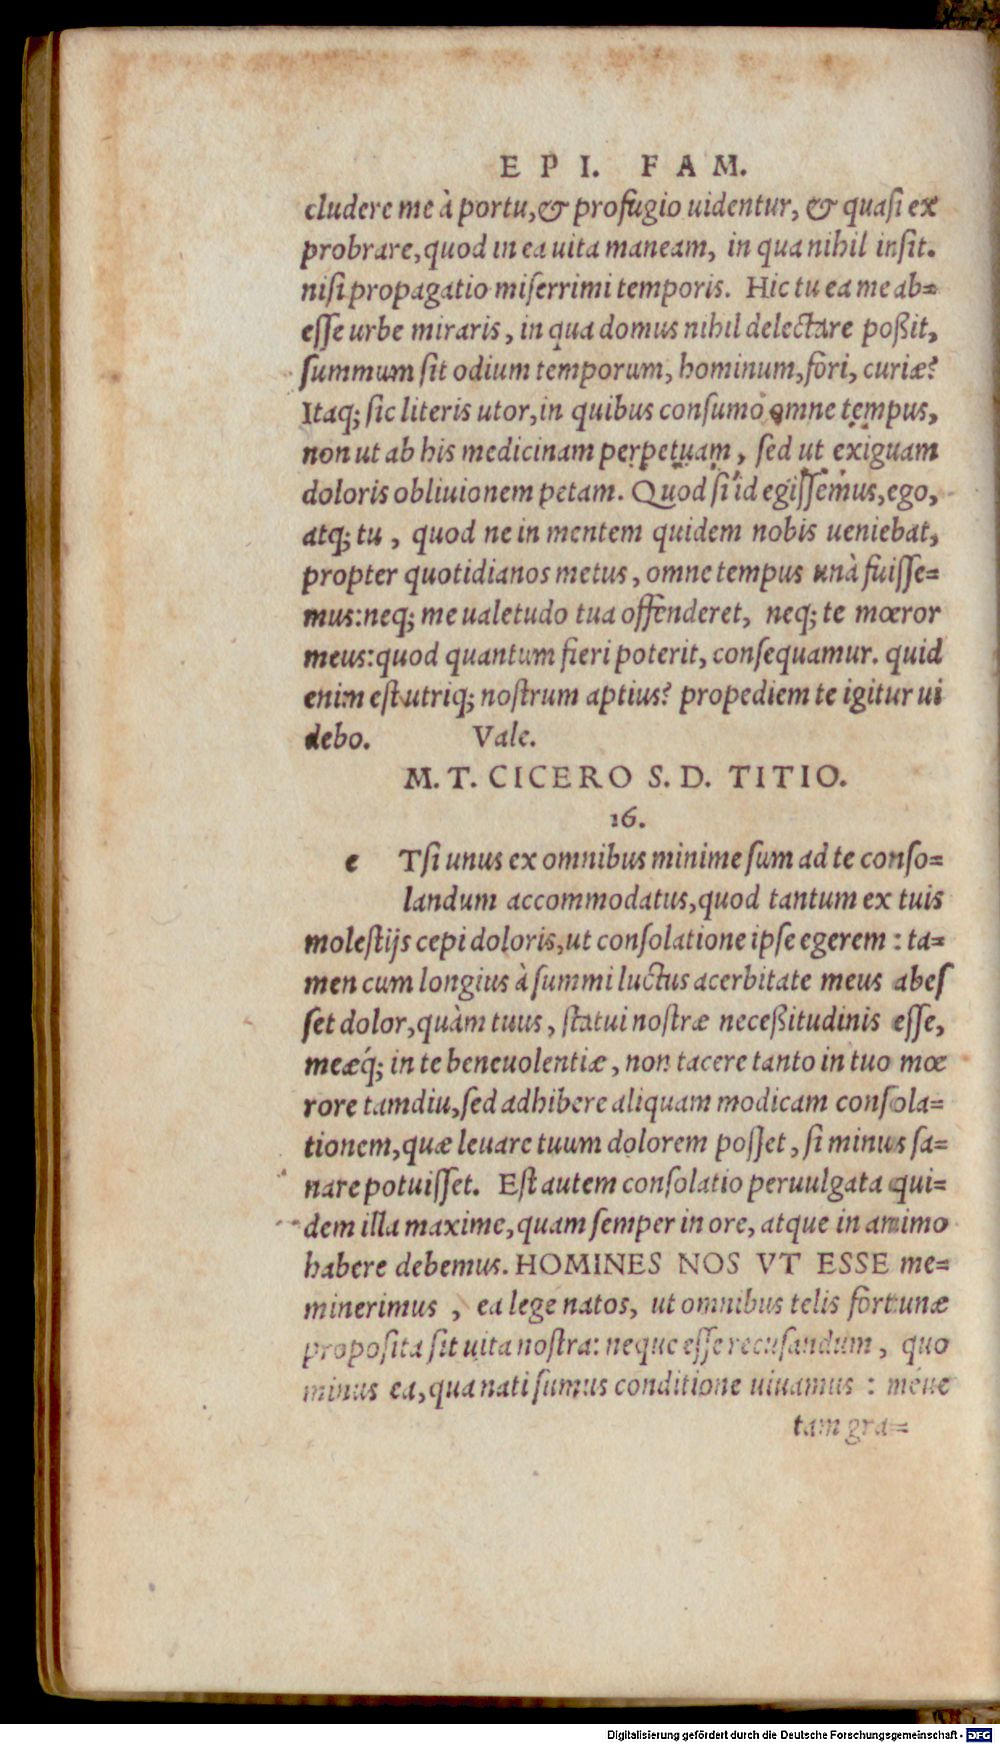 EPI. FAM.
cludere me à portu, & profugio uidentur, & quasi ex
probrare, quod in ea uita maneam, in qua nihil insit.
nisi propagatio miserrimi temporis. Hic tu ea me ab=
esse urbe miraris, in qua domus nihil delectare poßit,
summum sit odium temporum, hominum, fori, curiæ?
Itaq; sic literis utor, in quibus consumo omne tempus,
non ut ab his medicinam perpetuam, sed ut exiguam
doloris obliuionem petam. Quod si id egissemus, ego,
atq; tu, quod ne in mentem quidem nobis ueniebat,
propter quotidianos metus, omne tempus unà fuisse=
mus: neq; me ualetudo tua offenderet, neq; te mœror
meus: quod quantum fieri poterit, consequamur. quid
enim est utriq; nostrum aptius? propediem te igitur ui
debo. Vale.
M. T. CICERO S. D. TITIO.
16.
e Tsi unus ex omnibus minime sum ad te conso=
landum accommodatus, quod tantum ex tuis
molestijs cepi doloris, ut consolatione ipse egerem : ta=
men cum longius à summi luctus acerbitate meus abes
set dolor, quàm tuus, statui nostræ neceßitudinis esse,
meæq́; in te beneuolentiæ, non tacere tanto in tuo mœ
rore tamdiu, sed adhibere aliquam modicam consola=
tionem, quæ leuare tuum dolorem posset, si minus sa=
nare potuisset. Est autem consolatio peruulgata qui=
dem illa maxime, quam semper in ore, atque in animo
habere debemus. HOMINES NOS VT ESSE me=
minerimus , ea lege natos, ut omnibus telis fortunæ
proposita sit uita nostra: neque esse recusandum, quo
minus ea, qua nati sumus conditione uiuamus : méue
tam gra=
Digitalisierung gefördert durch die Deutsche Forschungsgemeinschaft - DFG